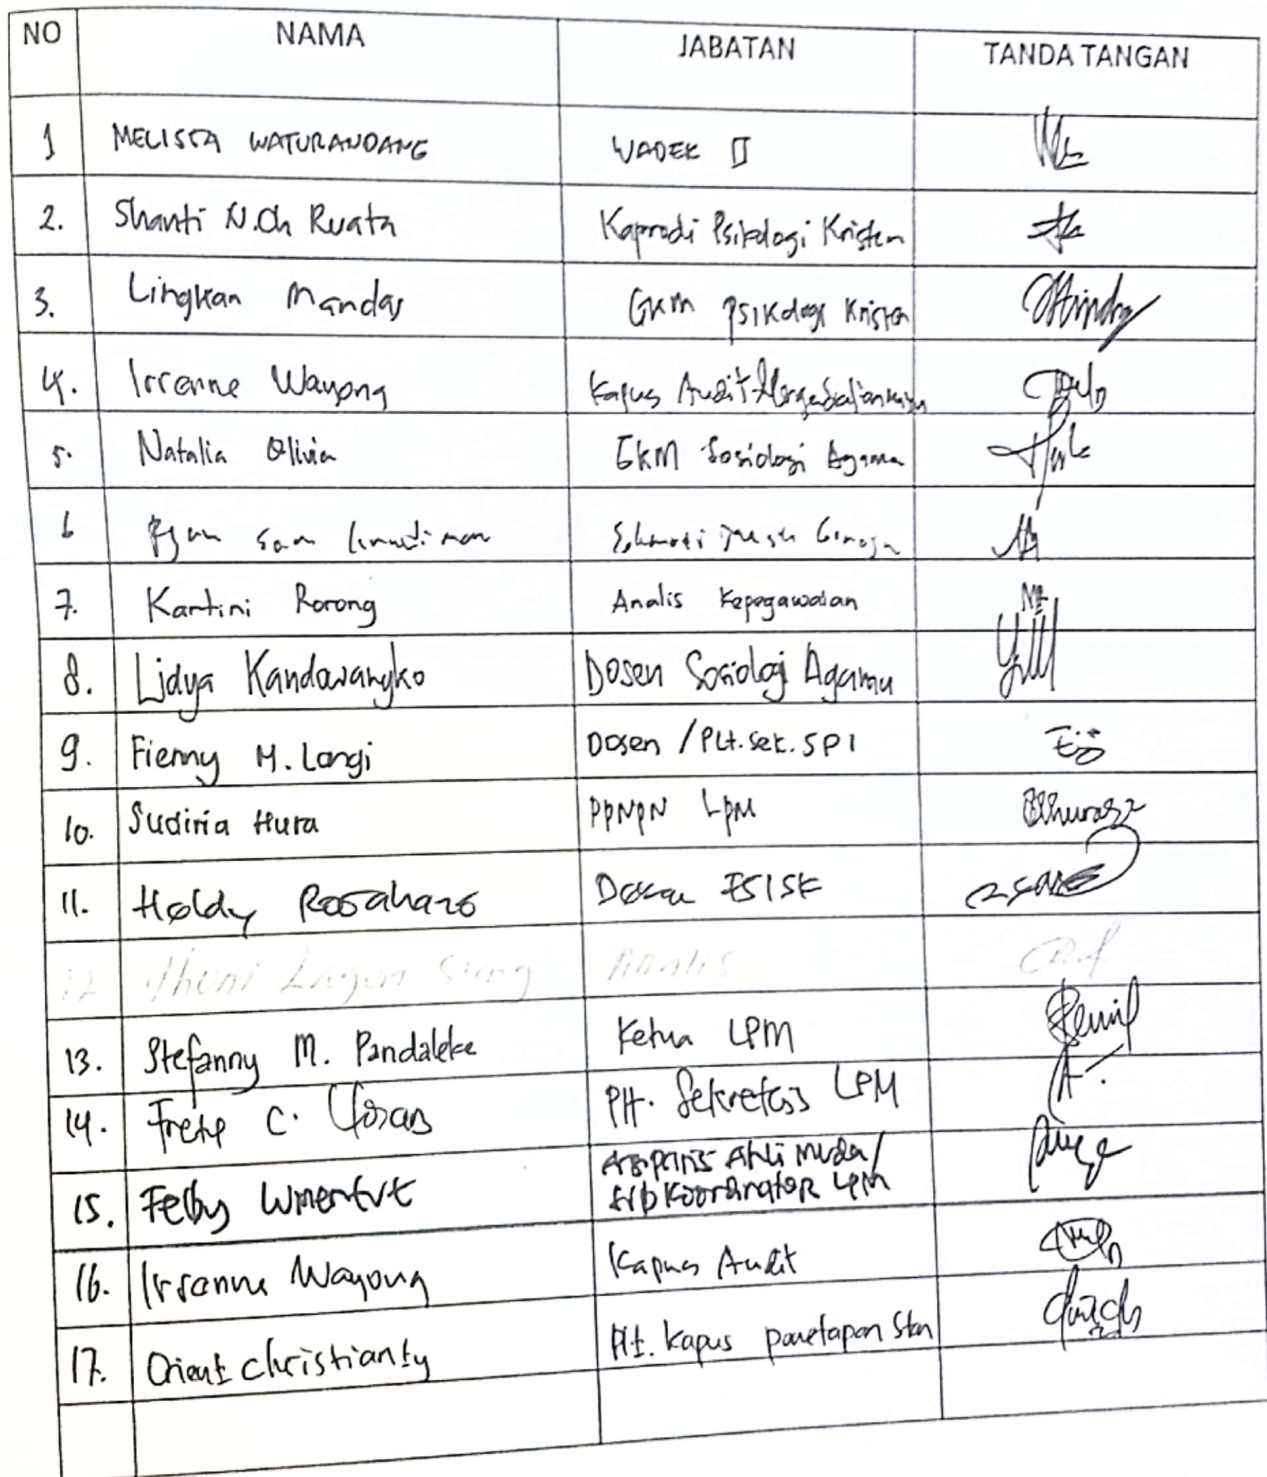 NO NAMA JABATAN TANDA TANGAN
1 MELISSA WATURANDANG WADEK II
2. Shanti N.Ch Ruata Kaprodi Psikologi Kristen
3. Lingkan Mandas GKM Psikologi Kristen
4. Irrenne Wayong Kapus Audit
5. Natalia Olivia GKM Sosiologi Agama
6 sam
7. Kartini Rorong Analis Kepegawaian
8. Lidya Kandowangko Dosen Sosiologi Agama
9. Fienny M. Langi Dosen / Plt. Sek. SPI
10. Sudiria Hura PPNPN LPM
11. Heldy Rogahang Dosen FSISK
12 Analis
13. Stefanny M. Pandaleke Ketua LPM
14. C. Plt. Sekretaris LPM
15. Felby Arsiparis Ahli Muda/
Sub Koordinator LPM
16. Irrenne Wayong Kapus Audit
17. Orient Christianty Plt. Kapus Penetapan Stan